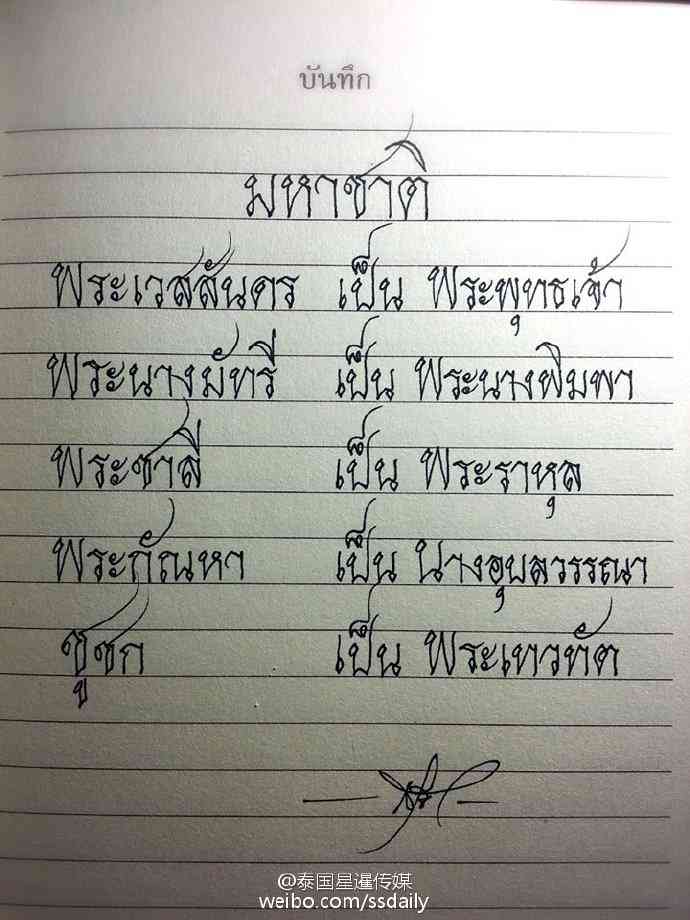 บันทึก
มหาชาติ
พระเวสสันดร เป็น พระพุทธเจ้า
พระนางมัทรี เป็น พระนางพิมพา
พระชาลี เป็น พระราหุล
พระกัณหา เป็น นางอุบลวรรณา
ชูชก เป็น พระเทวทัต
@泰国星暹传媒
weibo.com/ssdaily